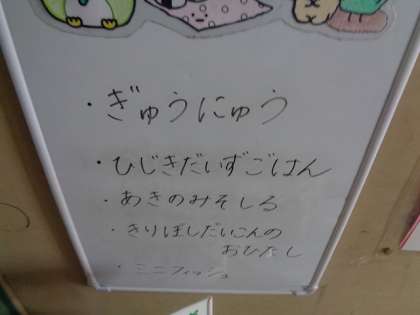 ・ぎゅうにゅう
・ひじきだいずごはん
・あきのみそしる
・きりぼしだいこんの
おひたし
・ミニフィッシュ